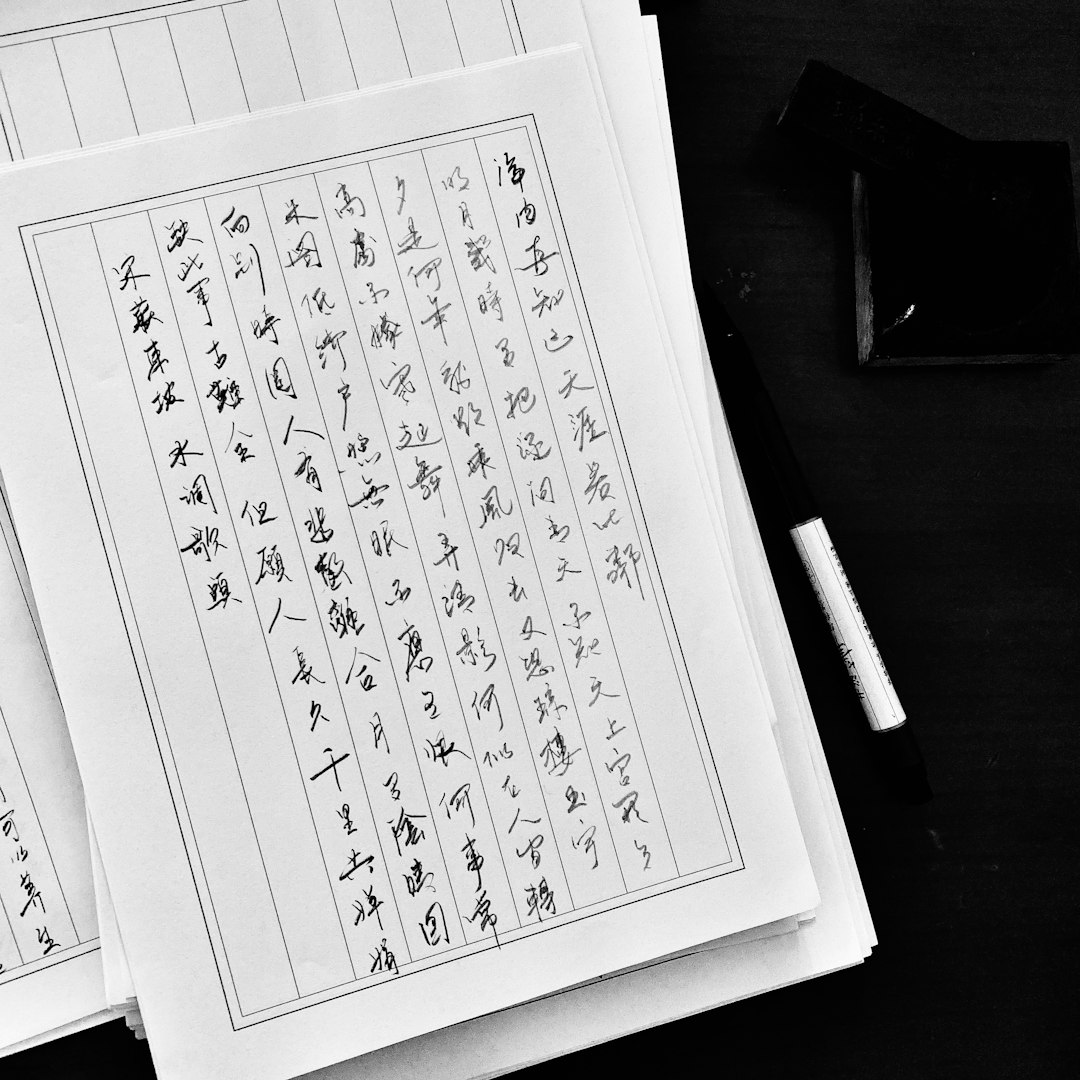 海内存知己天涯若比鄰
明月幾時有把酒問青天不知天上宮闕今
夕是何年我欲乘風歸去又恐瓊樓玉宇
高處不勝寒起舞弄清影何似在人間轉
朱閣低綺户照無眠不應有恨何事常
向别時圓人有悲歡離合月有陰晴圓
缺此事古難全但願人長久千里共嬋娟
宋蘇東坡水調歌頭
可以養生